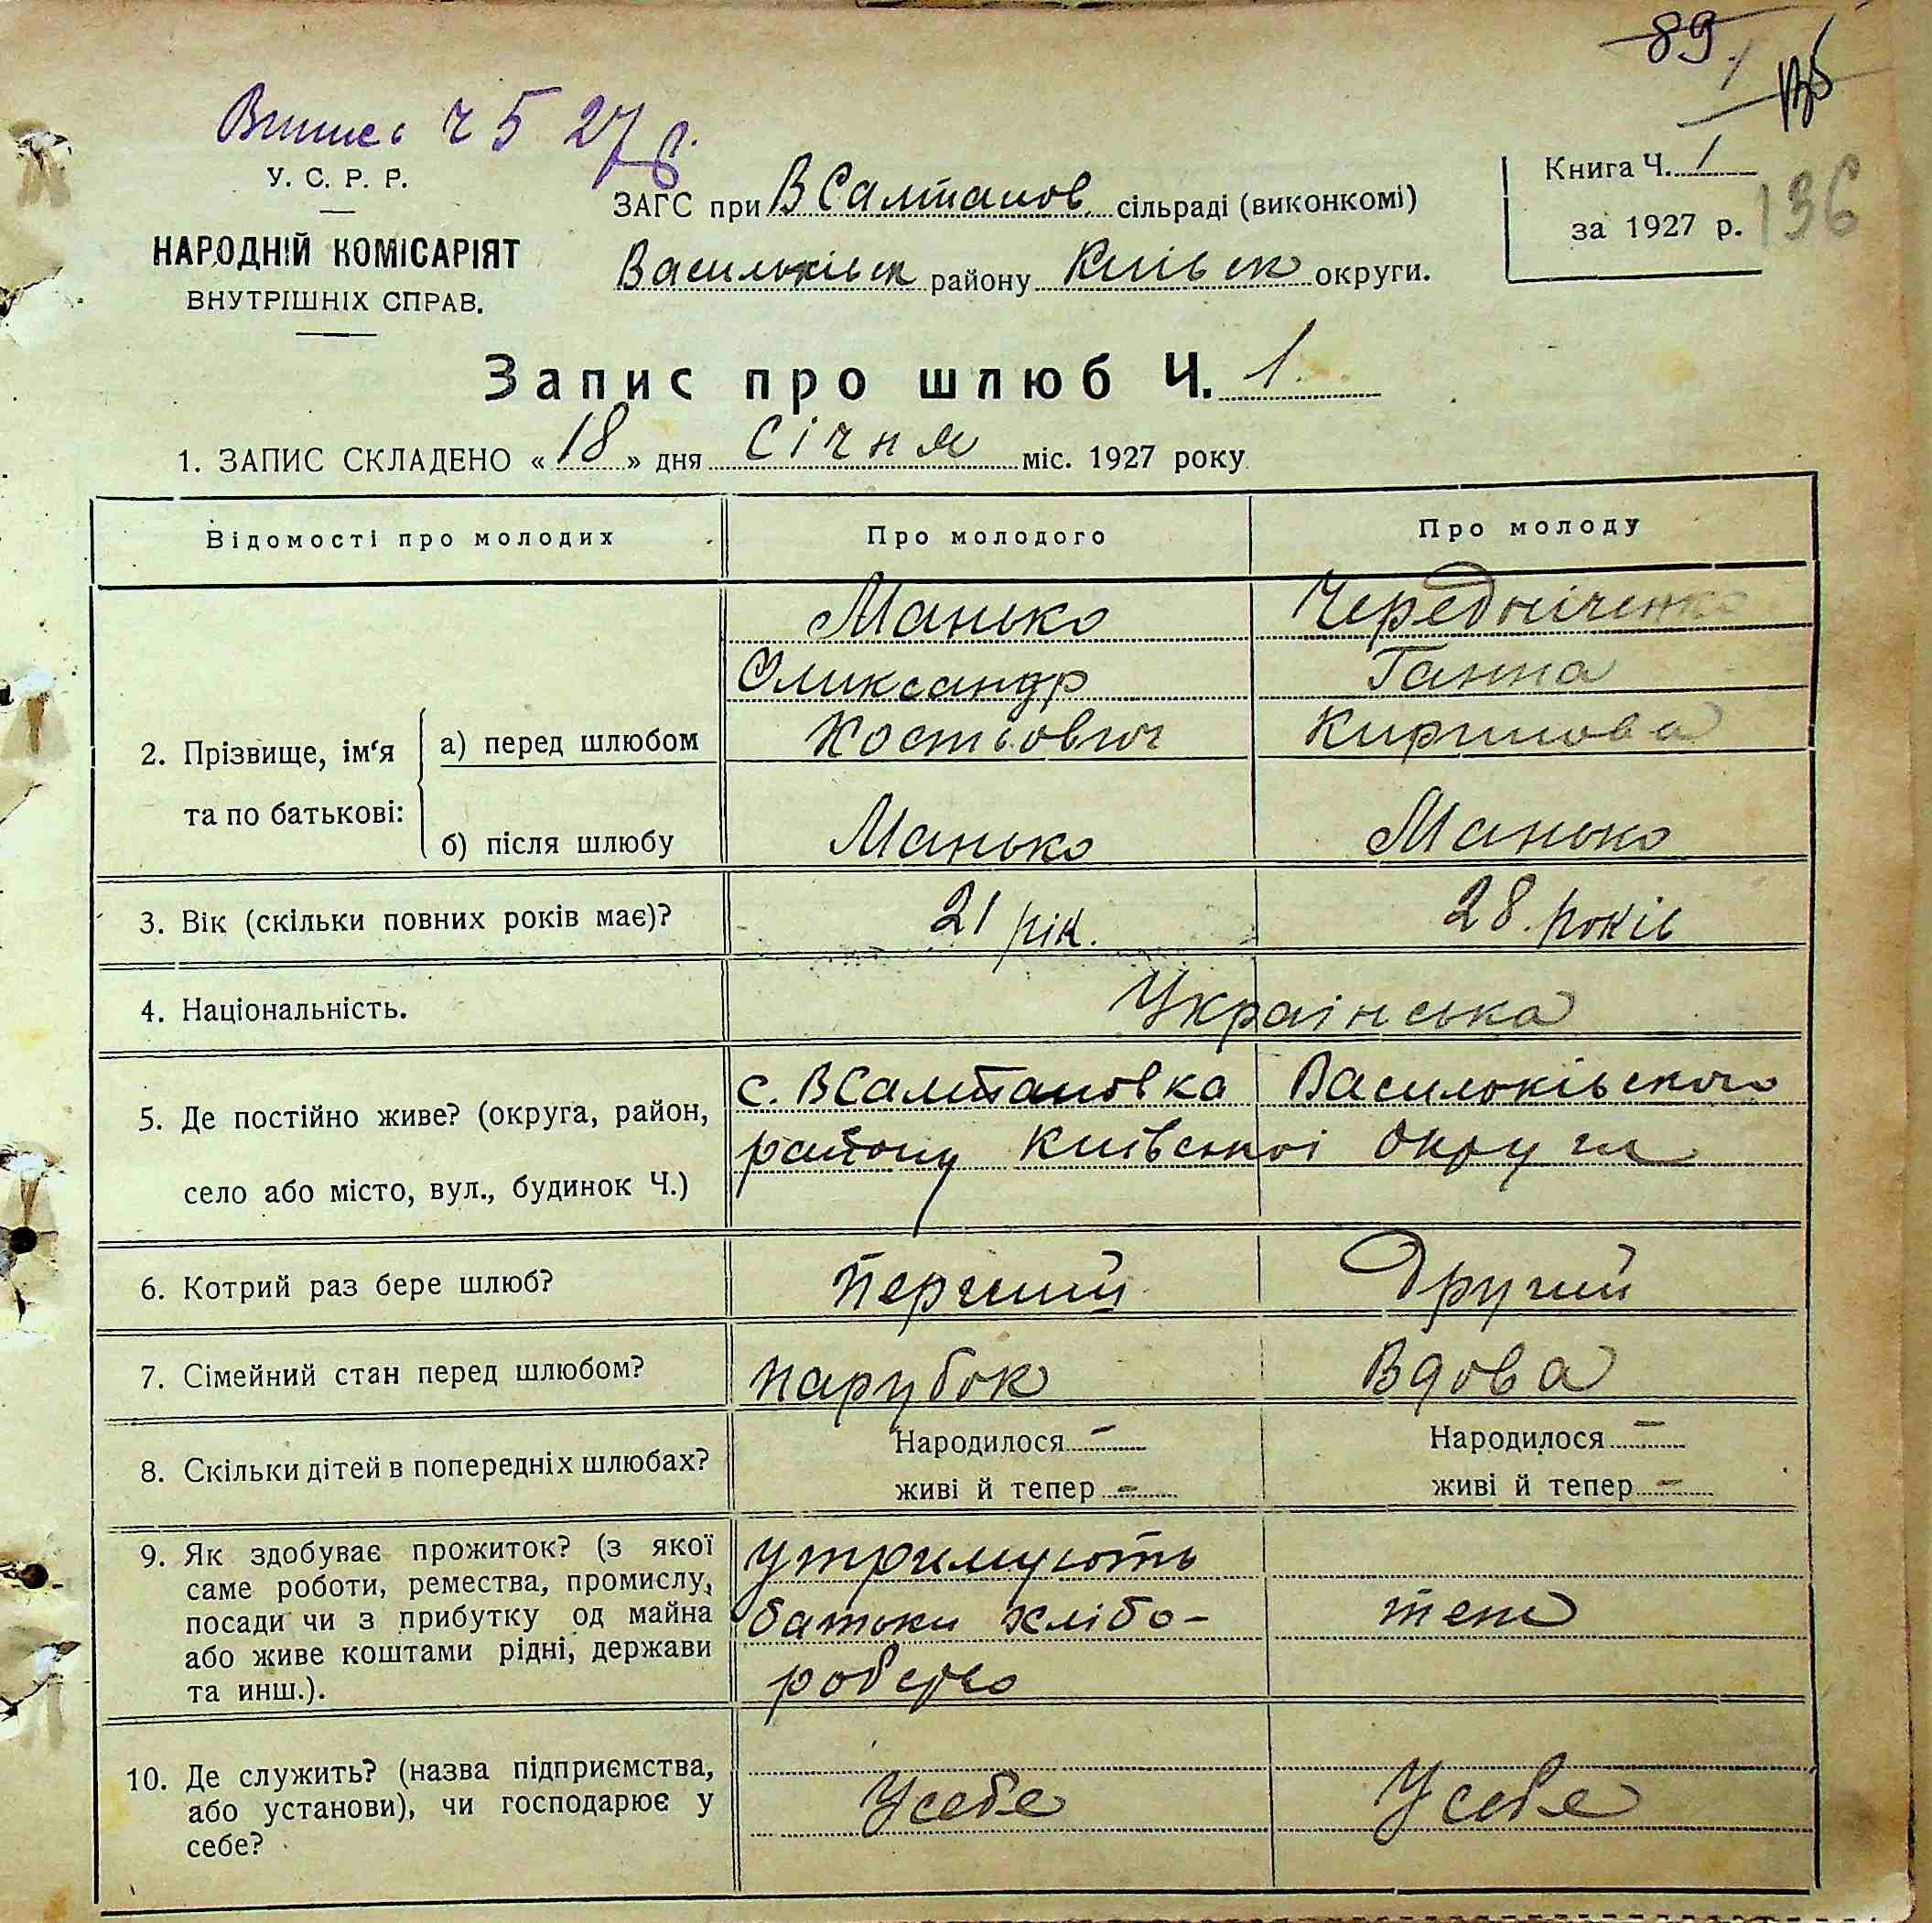 89
Випись ч 5 27 р.
У. С. Р. Р.
НАРОДНІЙ КОМІСАРІЯТ
ВНУТРІШНІХ СПРАВ.
ЗАГС при В Салтанов сільраді (виконкомі)
Васильківськ району Київськ округи.
Книга Ч. 1
за 1927 р.
136
Запис про шлюб Ч. 1
1. ЗАПИС СКЛАДЕНО « 18 » дня Січня міс. 1927 року
Відомості про молодих
Про молодого
Про молоду
2. Прізвище, ім'я
та по батькові:
а) перед шлюбом
Манько
Оликсандр
Костьович
Чередніченко
Ганна
Кирилова
б) після шлюбу
Манько
Манько
3. Вік (скільки повних років має)?
21 рік.
28. років
4. Національність.
Українська
5. Де постійно живе? (округа, район,
село або місто, вул., будинок Ч.)
с. ВСалтановка Васильківського
району Київської округи
6. Котрий раз бере шлюб?
Перший
Другий
7. Сімейний стан перед шлюбом?
парубок
Вдова
8. Скільки дітей в попередніх шлюбах?
Народилося –
живі й тепер –
Народилося –
живі й тепер –
9. Як здобуває прожиток? (з якої
саме роботи, ремества, промислу,
посади чи з прибутку од майна
або живе коштами рідні, держави
та инш.).
утримують
батьки хлібо-
теж
10. Де служить? (назва підприємства,
або установи), чи господарює у
себе?
У себе
У себе